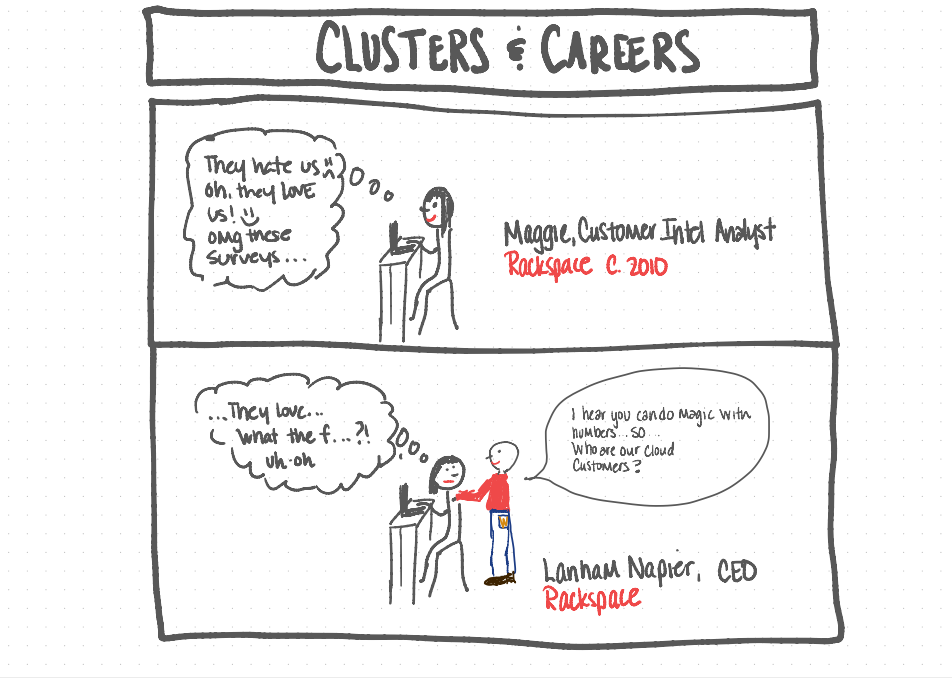 CLUSTERS & CAREERS
They hate us ☹
oh, they LOVE
us! ☺
omg these
surveys...
Maggie, Customer Intel Analyst
Rackspace C. 2010
...They love...
What the f...?!
uh-oh
I hear you can do Magic with
numbers...so...
Who are our Cloud
Customers?
Lanham Napier, CEO
Rackspace